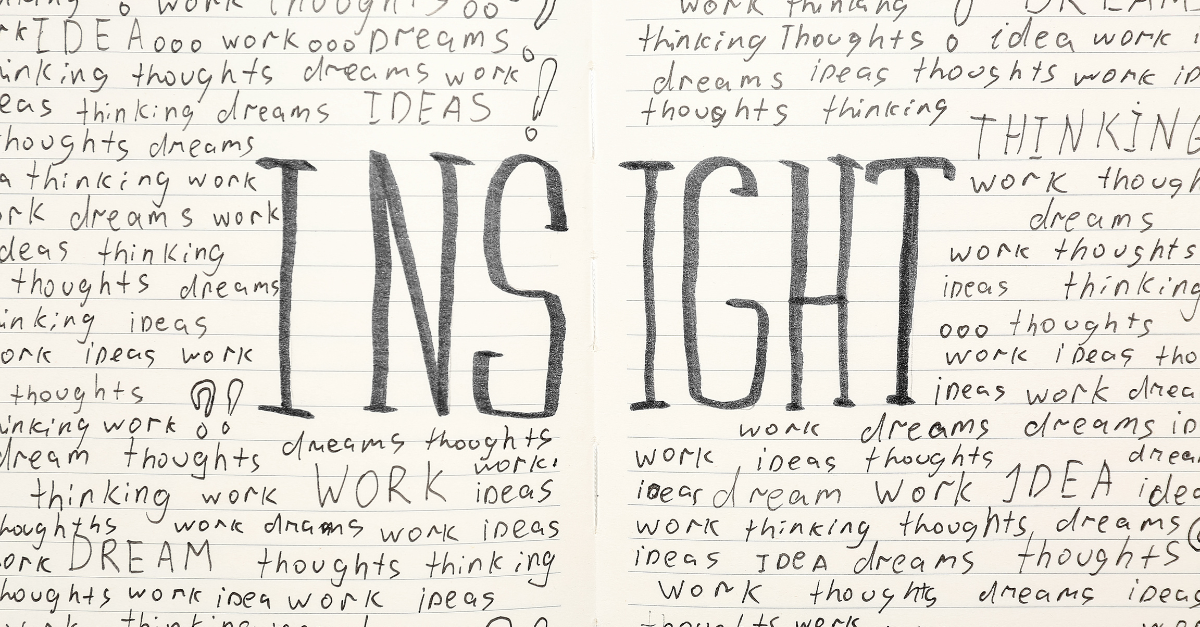 work thoughts
IDEA ooo work ooo Dreams
thinking thoughts dreams work
thinking dreams IDEAS !
thoughts dreams
thinking work
dreams work
ideas thinking
thoughts dreams
inking iDeas
work iDeas work
thoughts ?!
inking work
dream thoughts dreams thoughts
work.
thinking work WORK iDeas
work dreams work iDeas
DREAM thoughts thinking
thoughts work iDea work iDeas
INSIGHT
work thinking
thinking Thoughts o idea work
dreams iDeas thoughts work
thoughts thinking
THINKING
work
dreams
work thoughts
iDeas thinking
ooo thoughts
work iDeas
ideas work
work dreams dreams
work ideas thoughts
dream work IDEA
work thinking thoughts, dreams
iDeas IDeA dreams thoughts
work thoughts dreams iDeas
thoughts work